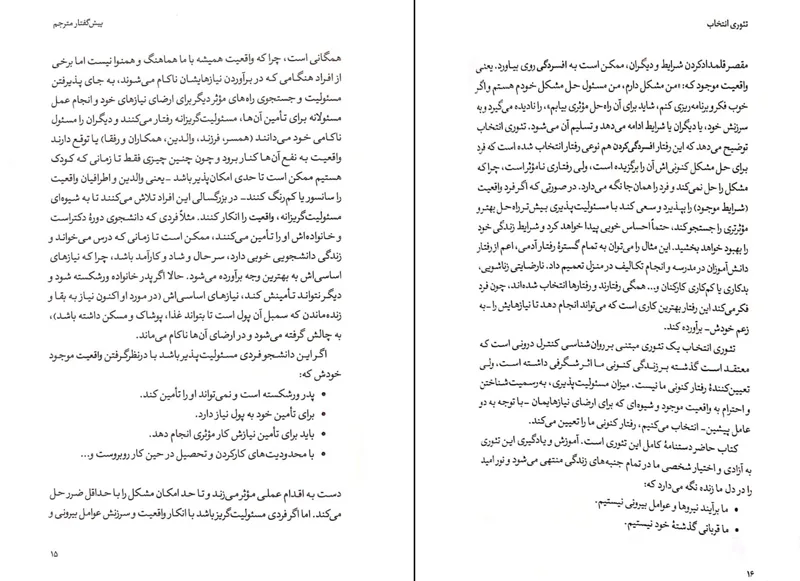 پیش‌گفتار مترجم
همگانی است، چرا که واقعیت همیشه با ما هماهنگ و همنوا نیست اما برخی
از افراد هنگامی که در برآوردن نیازهایشان ناکام می‌شوند، به جای پذیرفتن
مسئولیت و جستجوی راه‌های مؤثر دیگر برای ارضای نیازهای خود و انجام عمل
مسئولانه برای تأمین آن‌ها، مسئولیت‌گریزانه رفتار می‌کنند و دیگران را مسئول
ناکامی خود می‌دانند (همسر، فرزند، والدین، همکاران و رفقا) یا توقع دارند
واقعیت به نفع آن‌ها کنار برود و چون چنین چیزی فقط تا زمانی که کودک
هستیم ممکن است تا حدی امکان‌پذیر باشد -یعنی والدین و اطرافیان واقعیت
را سانسور یا کم‌رنگ کنند- در بزرگسالی این افراد تلاش می‌کنند تا به شیوه‌ای
مسئولیت‌گریزانه، واقعیت را انکار کنند. مثلاً فردی که دانشجوی دورهٔ دکتراست
و خانواده‌اش او را تأمین می‌کنند، ممکن است تا زمانی که درس می‌خواند و
زندگی دانشجویی خوبی دارد، سرحال و شاد و کارآمد باشد، چرا که نیازهای
اساسی‌اش به بهترین وجه برآورده می‌شود. حالا اگر پدر خانواده ورشکسته شود و
دیگر نتواند تأمینش کند، نیازهای اساسی‌اش (در مورد او اکنون نیاز به بقا و
زنده‌ماندن که سمبل آن پول است تا بتواند غذا، پوشاک و مسکن داشته باشد)،
به چالش گرفته می‌شود و در ارضای آن‌ها ناکام می‌ماند.
اگر این دانشجو فردی مسئولیت‌پذیر باشد با درنظرگرفتن واقعیت موجود
خودش که:
• پدر ورشکسته است و نمی‌تواند او را تأمین کند.
• برای تأمین خود به پول نیاز دارد.
• باید برای تأمین نیازش کار مؤثری انجام دهد.
• با محدودیت‌های کارکردن و تحصیل در حین کار روبروست و...
دست به اقدام عملی مؤثر می‌زند و تا حد امکان مشکل را با حداقل ضرر حل
می‌کند. اما اگر فردی مسئولیت‌گریز باشد با انکار واقعیت و سرزنش عوامل بیرونی و
۱۵
تئوری انتخاب
مقصر قلمدادکردن شرایط و دیگران، ممکن است به افسردگی روی بیاورد. یعنی
واقعیت موجود که: «من مشکل دارم، من مسئول حل مشکل خودم هستم و اگر
خوب فکر و برنامه‌ریزی کنم، شاید برای آن راه‌حل مؤثری بیابم»، را نادیده می‌گیرد و به
سرزنش خود، یا دیگران یا شرایط ادامه می‌دهد و تسلیم آن می‌شود. تئوری انتخاب
توضیح می‌دهد که این رفتار افسردگی‌کردن هم نوعی رفتار انتخاب شده است که فرد
برای حل مشکل کنونی‌اش آن را برگزیده است، ولی رفتاری نامؤثر است، چرا که
مشکل را حل نمی‌کند و فرد را همان‌جا نگه می‌دارد. در صورتی که اگر فرد واقعیت
(شرایط موجود) را بپذیرد و سعی کند با مسئولیت‌پذیری بیش‌تر راه‌حل بهتر و
مؤثرتری را جستجو کند، حتماً احساس خوبی پیدا خواهد کرد و شرایط زندگی خود
را بهبود خواهد بخشید. این مثال را می‌توان به تمام گسترهٔ رفتار آدمی، اعم از رفتار
دانش‌آموزان در مدرسه و انجام تکالیف در منزل تعمیم داد. نارضایتی زناشویی،
بدکاری یا کم‌کاری کارکنان و... همگی رفتارند و رفتارها انتخاب شده‌اند، چون فرد
فکر می‌کند این رفتار بهترین کاری است که می‌تواند انجام دهد تا نیازهایش را -به
زعم خودش- برآورده کند.
تئوری انتخاب یک تئوری مبتنی بر روان‌شناسی کنترل درونی است که
معتقد است گذشته بر زندگی کنونی ما اثر شگرفی داشته است، ولی
تعیین‌کنندهٔ رفتار کنونی ما نیست. میزان مسئولیت‌پذیری، به‌رسمیت‌شناختن
و احترام به واقعیت موجود و شیوه‌ای که برای ارضای نیازهایمان -با توجه به دو
عامل پیشین- انتخاب می‌کنیم، رفتار کنونی ما را تعیین می‌کند.
کتاب حاضر دستنامهٔ کامل این تئوری است. آموزش و یادگیری این تئوری
به آزادی و اختیار شخصی ما در تمام جنبه‌های زندگی منتهی می‌شود و نور امید
را در دل ما زنده نگه می‌دارد که:
• ما برآیند نیروها و عوامل بیرونی نیستیم.
• ما قربانی گذشتهٔ خود نیستیم.
۱۶